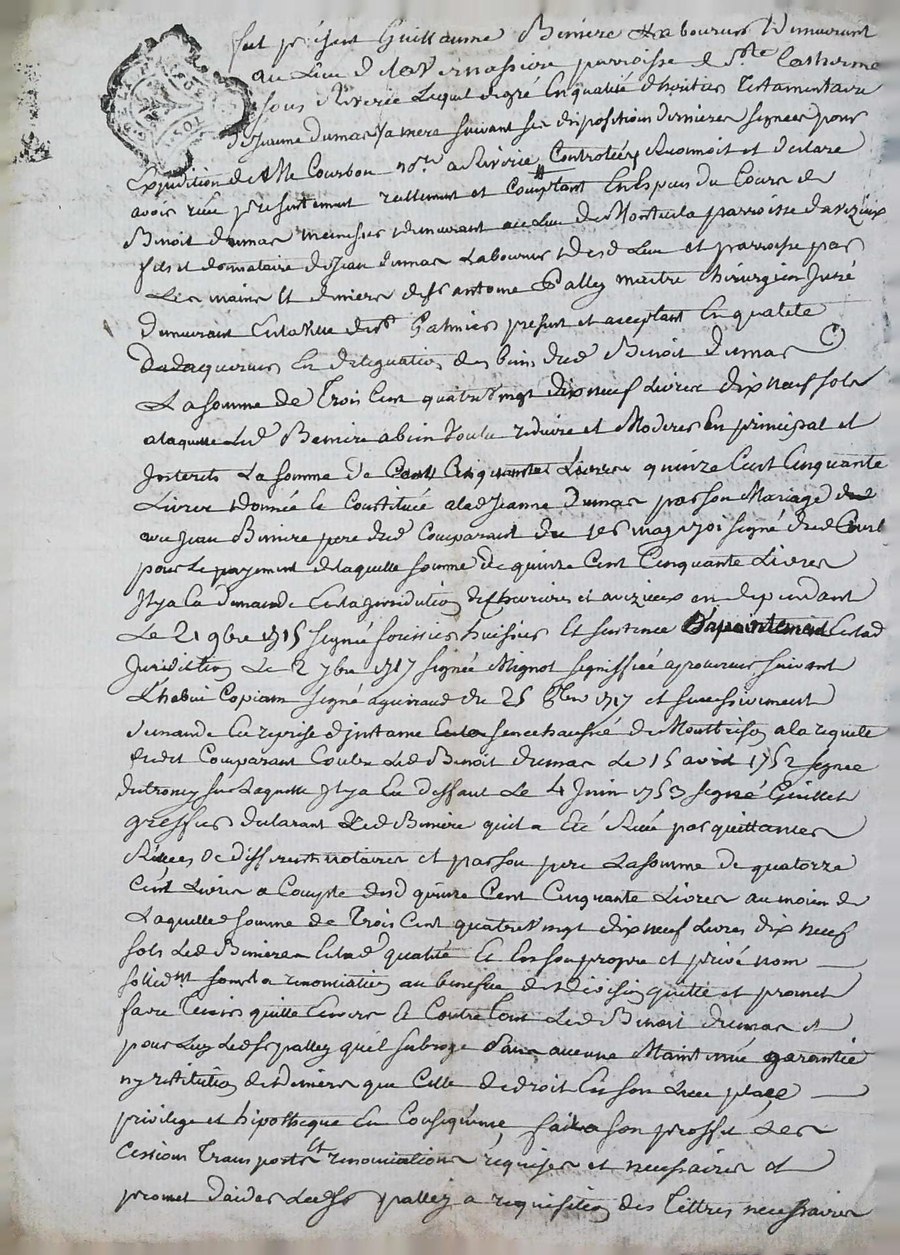 fut présent Guillaume Biniere Laboureur demeurant
au Lieu de la Vernassiere parroisse de Ste Catherine
sous Riverie Lequel de gré En qualité d'heritier Testamentaire
de Jeanne dumas sa mere suivant ses dispositions dernieres signees pour
Expedition de Me Courbon nore a Riverie Controlées Reconnoit et declare
avoir reçu presentement reellement et Comptant En Especes du Cours de
Benoit dumas demeurant au Lieu de parroisse d'avezieux
fils et donnataire de Jean dumas Laboureur dud Lieu et parroisse par
Les mains et deniers de Sr antoine Palley maitre Chirurgien Juré
demeurant En la Ville de St Galmier present et acceptant En qualité
d'acquereur En delegation des biens dud Benoit dumas
La somme de Trois Cent quatre Vingt dix neuf Livres dix neuf sols
a laquelle Led Biniere a bien voulu reduire et Moderer En principal et
Interets La somme de quinze Cent Cinquante
Livres donnée et Constituée a lad Jeanne dumas par son Mariage
avec Jean Biniere pere dud Comparant du 1er may signé
pour le payement de laquelle somme de quinze Cent Cinquante Livres
Il y a Eu demande En la jurisdiction de et avezieux en dependant
Le 21 9bre 1715 signée huissier Et sentence En lad
Jurisdiction Le 2 7bre 1717 signée Mignot signiffiée a procureur suivant
L'habui Copiam signé aguiraud du 25 8bre 1717 et successivement
demande En reprise d'instance En la senechaussée de Montbrison a la requete
dudit Comparant Contre Led Benoit dumas Le 15 avril 1752 signée
dutroncy sur Laquelle Il y a Eu deffaut Le 4 Juin 1753 signé Guillet
greffier declarant Led Biniere qu'il a Eté Reçu par quittances
Reçues de differents notaires et par son pere La somme de quatorze
Cent Livres a Compte desd quinze Cent Cinquante Livres au moien de
Laquelle somme de Trois Cent quatre Vingt dix neuf Livres dix neuf
sols Led Biniere En lad qualité Et En son propre et privé nom
sollidmt sous la renonciation au benefice de division quitte et promet
faire Tenir quitte Envers Et Contre Tous Led Benoit dumas et
pour Luy Led Sr palley qu'il subroge sans aucune Maintenue garantie
ny restitution de deniers que Celle de droit En son Lieu place
privilege et hipotheque En Consequence fait a son proffit Les
Cessions Transports Et renonciations requises et necessaires et
promet d'aider Led Sr palley a requisition des Tittres necessaires